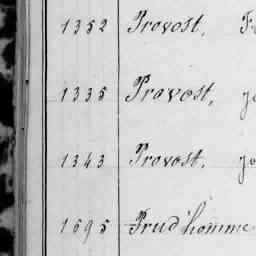 1352 Provost,
1335 Provost,
1343 Provost.
1695 Prud'homme